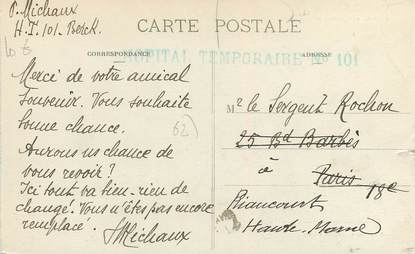 P. Michaux
H.T. 101. Berck.
CARTE POSTALE
CORRESPONDANCE
ADRESSE
HOPITAL TEMPORAIRE No 101
Merci de votre amical
Souvenir. Vous souhaite
bonne chance.
Aurons ns chance de
vous revoir?
Ici tout va bien - rien de
changé. Vous n'êtes pas encore
remplacé.
Michaux
62
Mr le Sergent Rochon
25 Bd Barbès
à Paris 18e
Biancourt
Haute-Marne